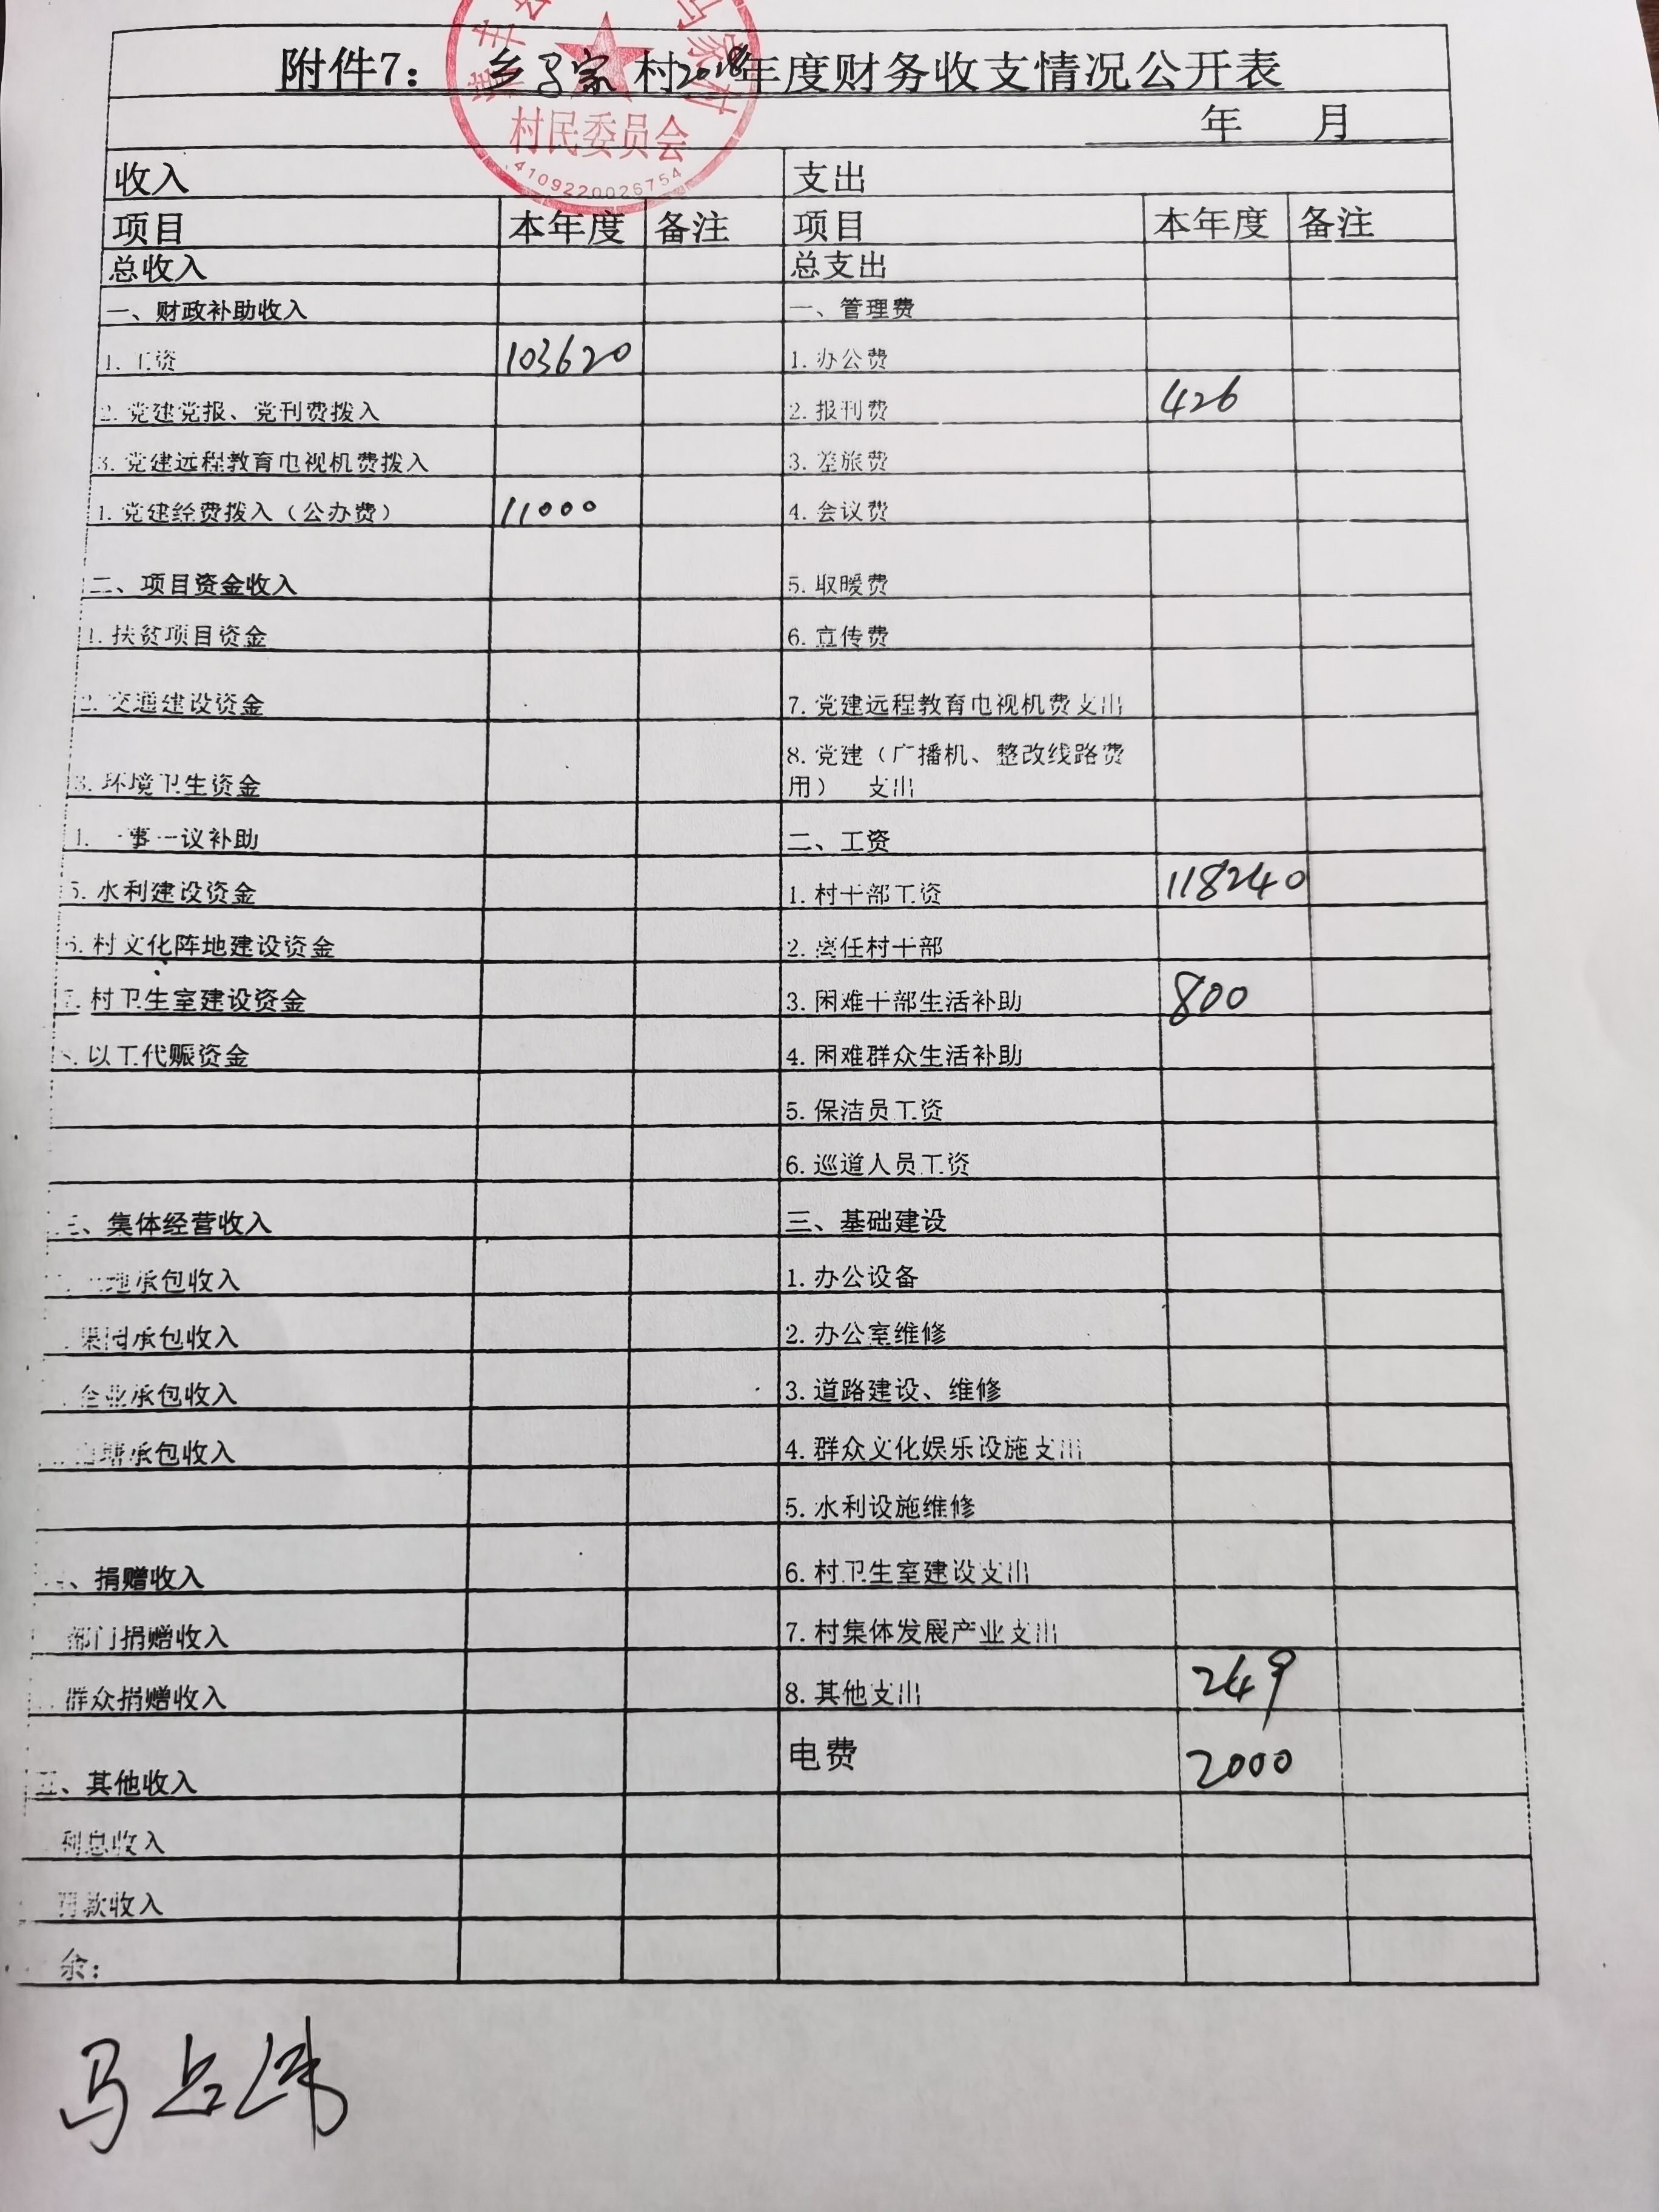 附件7：乡马家村2018年度财务收支情况公开表
村民委员会
4109220026754
年 月
收入 支出
项目 本年度 备注 项目 本年度 备注
总收入 总支出
一、财政补助收入 一、管理费
1.工资 103620 1.办公费
2.党建党报、党刊费拨入 2.报刊费 426
3.党建远程教育电视机费拨入 3.差旅费
1.党建经费拨入（公办费） 11000 4.会议费
二、项目资金收入 5.取暖费
1.扶贫项目资金 6.宣传费
2.交通建设资金 7.党建远程教育电视机费支出
3.环境卫生资金 8.党建（广播机、整改线路费
用） 支出
一事一议补助 二、工资
5.水利建设资金 1.村干部工资 118240
6.村文化阵地建设资金 2.离任村干部
7.村卫生室建设资金 3.困难干部生活补助 800
以工代赈资金 4.困难群众生活补助
5.保洁员工资
6.巡道人员工资
三、集体经营收入 三、基础建设
地承包收入 1.办公设备
果园承包收入 2.办公室维修
企业承包收入 3.道路建设、维修
塘承包收入 4.群众文化娱乐设施支出
5.水利设施维修
、捐赠收入 6.村卫生室建设支出
部门捐赠收入 7.村集体发展产业支出
群众捐赠收入 8.其他支出 249
五、其他收入 电费 2000
利息收入
款收入
余：
马占伟